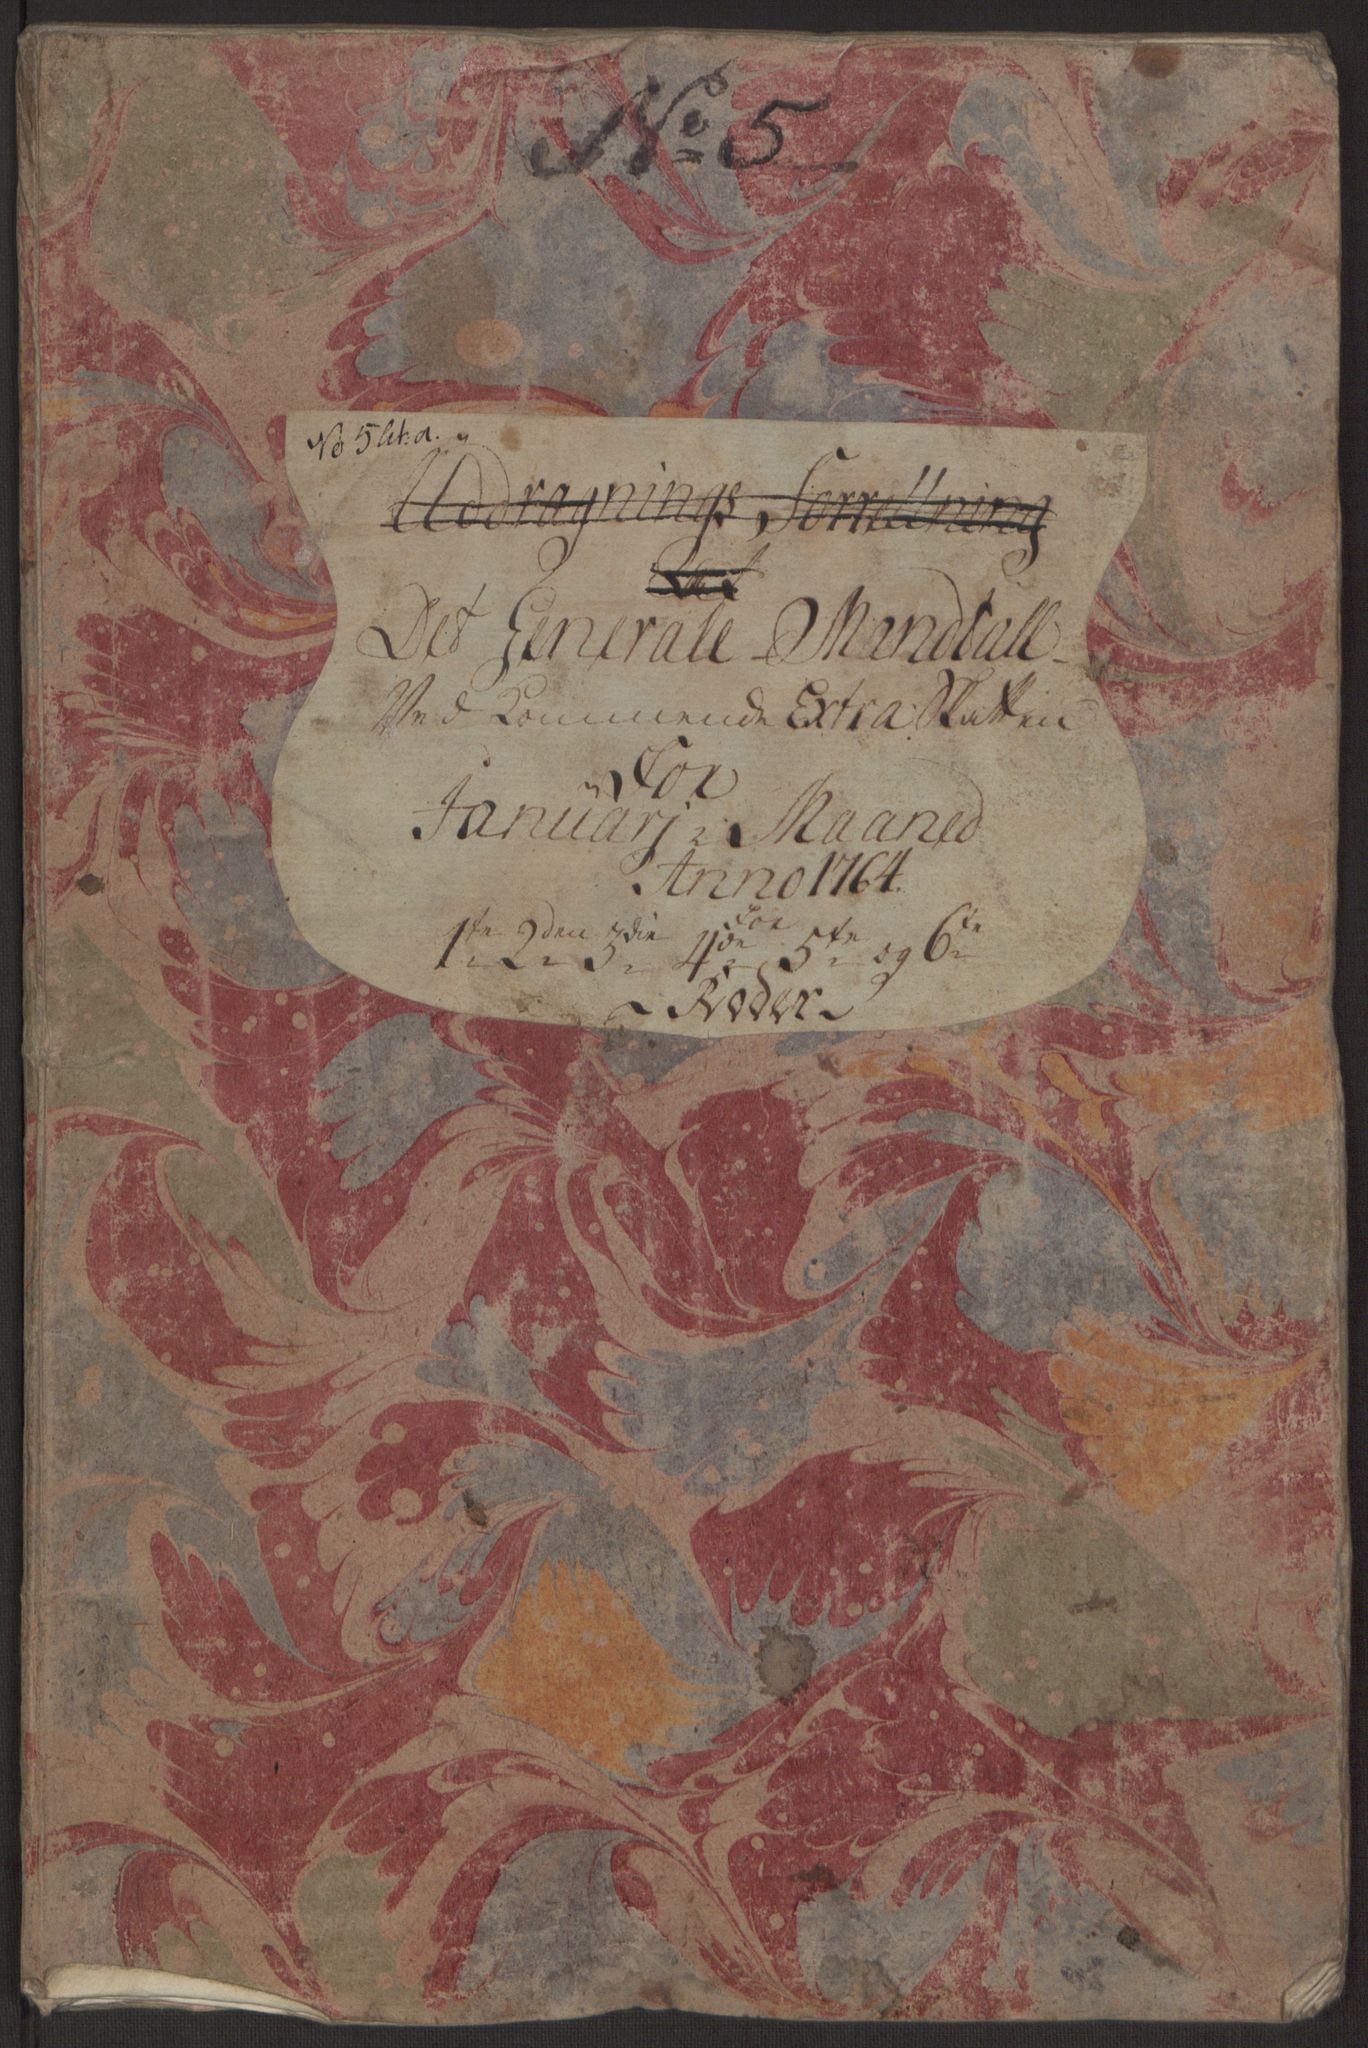 No 5
No 5 lit: a.
Uddragnings Forretning
Det Generale Mandtall
Ved Kommende Extra Skatten
For
Januarj Maaned
Anno 1764.
For
1te 2den 3die 4de 5te og 6te
Roder